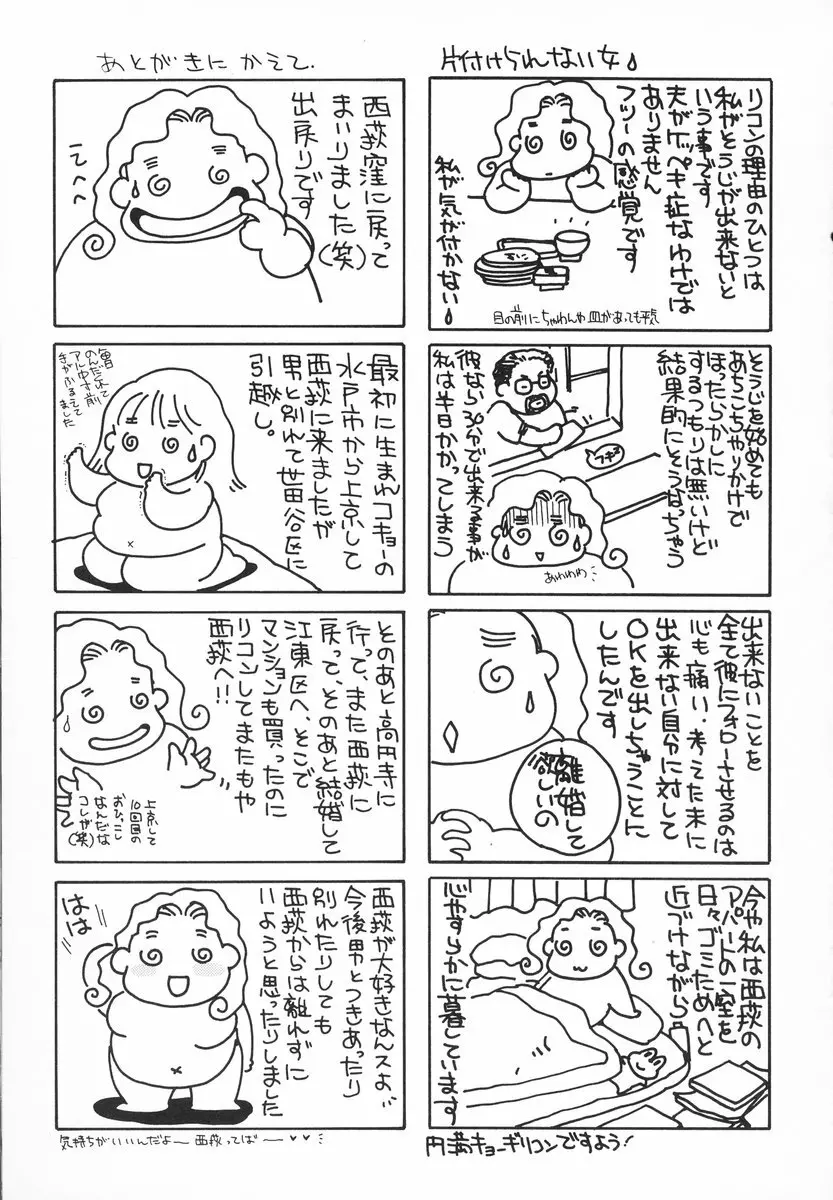 片付けられない女
リコンの理由のひとつは
私がそうじが出来ないと
いう事です
夫がケッペキ症なわけでは
ありません
フツーの感覚です
私が気が付かない
目の前にちゃわんや皿があっても平気
そうじを始めても
あちこちゃりかけで
ほったらかしに
するつもりは無いけど
結果的にそうなっちゃう
彼なら30分で出来る事が
私は半日かかってしまう
フキフキ
あわわわ
出来ないことを
全て彼にフォローさせるのは
心も痛い・考えた末に
出来ない自分に対して
OKを出しちゃうことに
したんです
離婚して
欲しいの
今や私は西荻の
アパートの一室を
日々ゴミためへと
近づけながら
心やすらかに暮しています
円満キョーギリコンですよう!
あとがきに かえて.
西荻窪に戻って
まいりました(笑)
出戻りです
てへへ
最初に生まれコキョーの
水戸市から上京して
西荻に来ましたが
男と別れて世田谷区に
引越し。
昔
のんだくれて
アル中寸前
手がふるえて
ました
そのあと高円寺に
行って、また西荻に
戻って、そのあと結婚して
江東区へ、そこで
マンションも買ったのに
リコンしてまたもや
西荻へ!!
上京して
10回目の
おひっこし
なんだな
コレが(笑)
西荻が大好きなんスよ
今後男とつきあったり
別れたりしても
西荻からは離れずに
いようと思ったりしました
はは
気持ちがいいんだよー 西荻ってばー